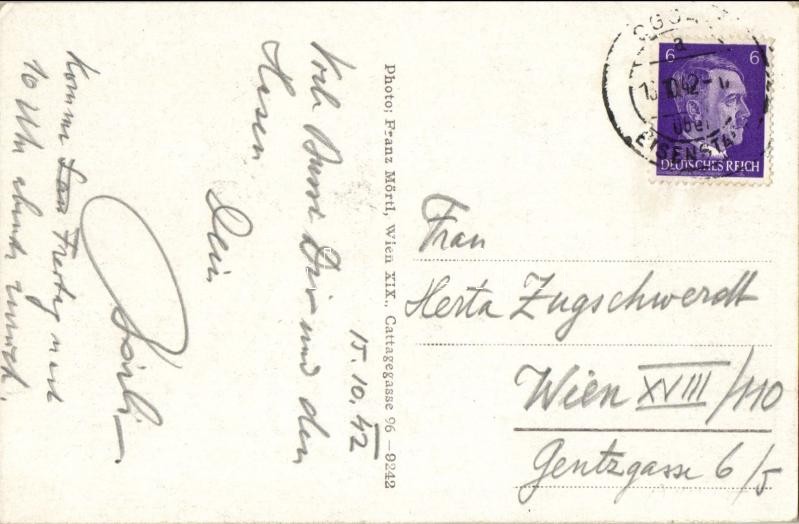 15. 10. 42
Viele Bussi Dir und den
Hasen
Dein
Komme Freitag
10 Uhr abends zurück.
Photo; Franz Mörtl, Wien XIX., Cattagegasse 96 —9242
6 6
DEUTSCHES REICH
a
EISENSTA
Frau
Herta Zugschwerdt
Wien XVIII/110
Gentzgasse 6/5